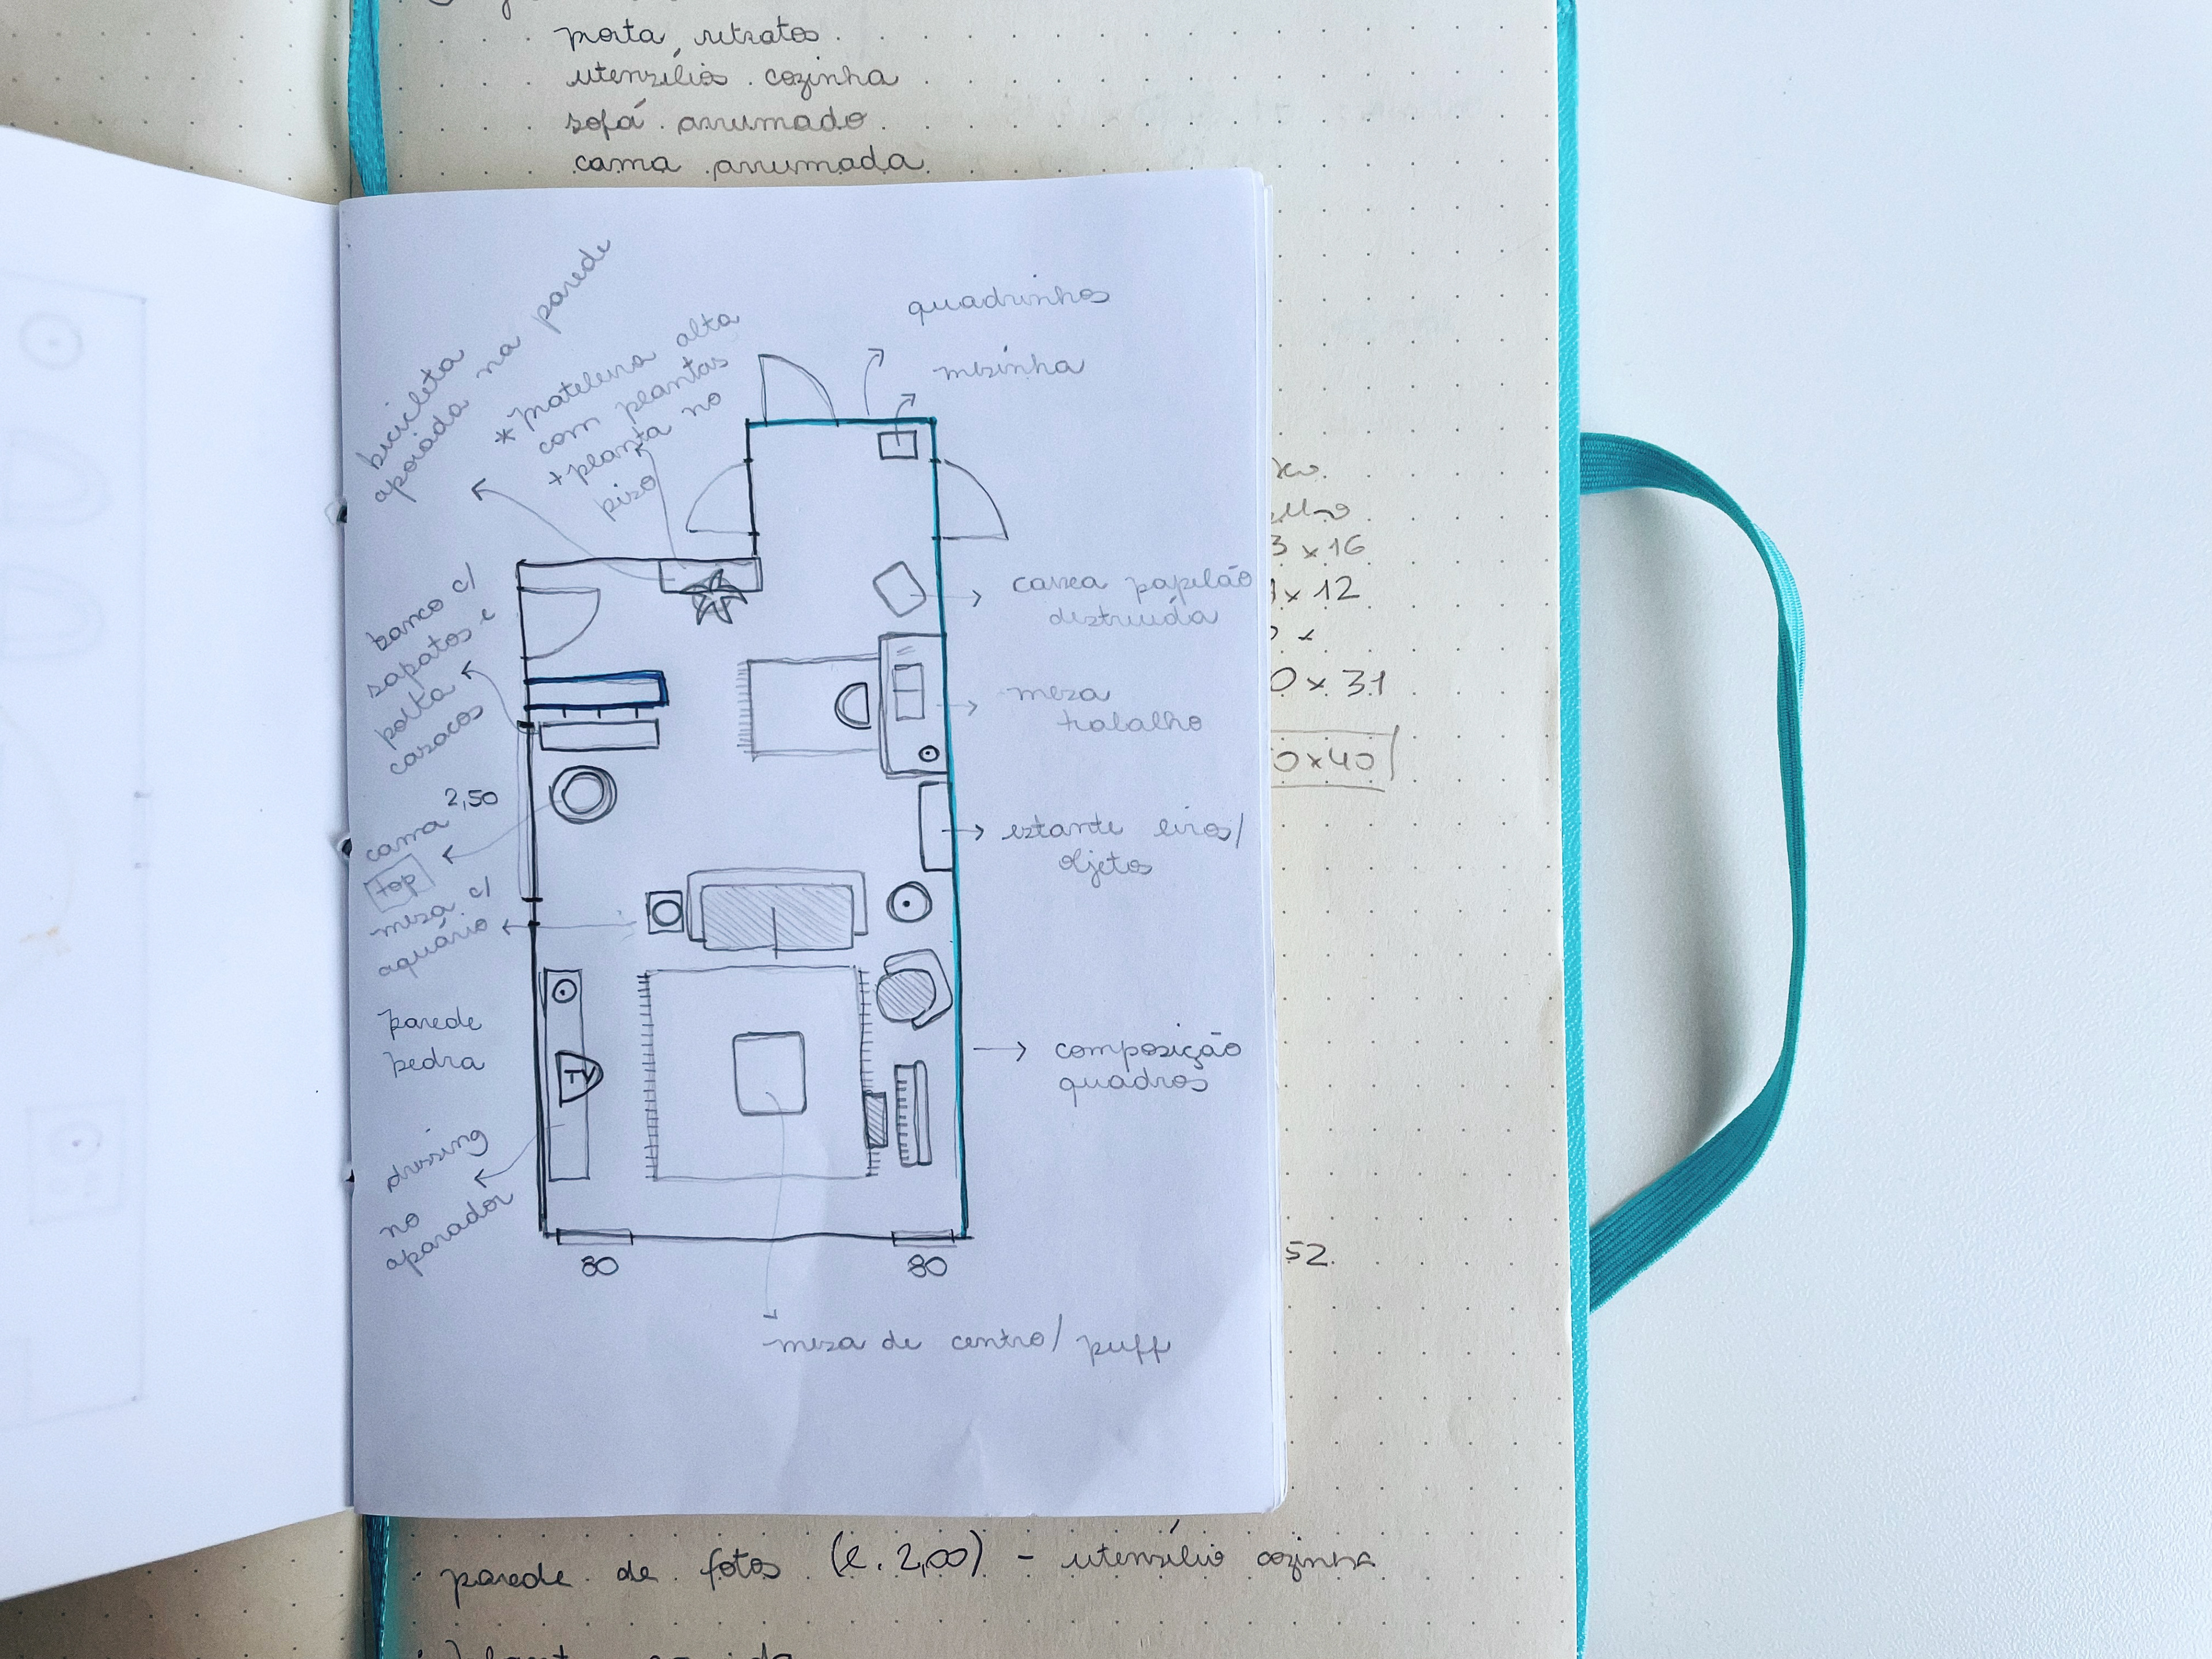 porta retratos
utensílios cozinha
sofá arrumado
cama arrumada
bicicleta
apoiada na parede
* prateleira alta
com plantas
+ planta no
piso
quadrinhos
mesinha
banco c/
sapatos e
porta
casacos
caixa papelão
destruída
mesa
trabalho
2,50
cama
top
mesa c/
aquário
estante livros/
objetos
parede
pedra
TV
composição
quadros
dressing
no
aparador
80
80
mesa de centro/ puff
3 x 16
x 12
0 x 31
0x40
52
parede de fotos (l. 2,00) - utensílio cozinha